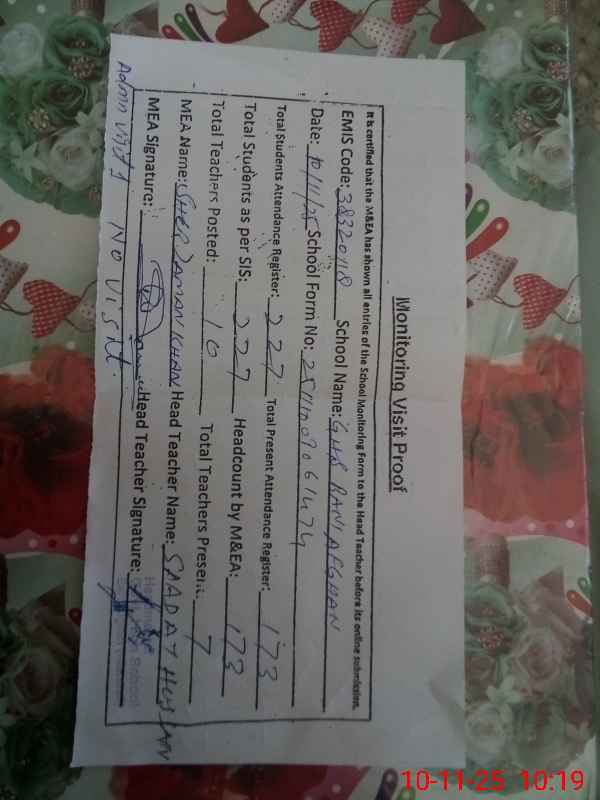 Monitoring Visit Proof
It is certified that the M&EA has shown all entries of the School Monitoring Form to the Head Teacher before its online submission.
EMIS Code: 38320118 School Name: GHS BANIAFGHAN
Date: 10/11/25 School Form No: 
Total Students Attendance Register: 227 Total Present Attendance Register: 173
Total Students as per SIS: 227 Headcount by M&EA: 173
Total Teachers Posted: 10 Total Teachers Present: 7
MEA Name: SHER ZAMAN KHAN Head Teacher Name: SAADAT HUSSAIN
MEA Signature: Head Teacher Signature:
Admin visit 1 No Visit.
10-11-25 10:19